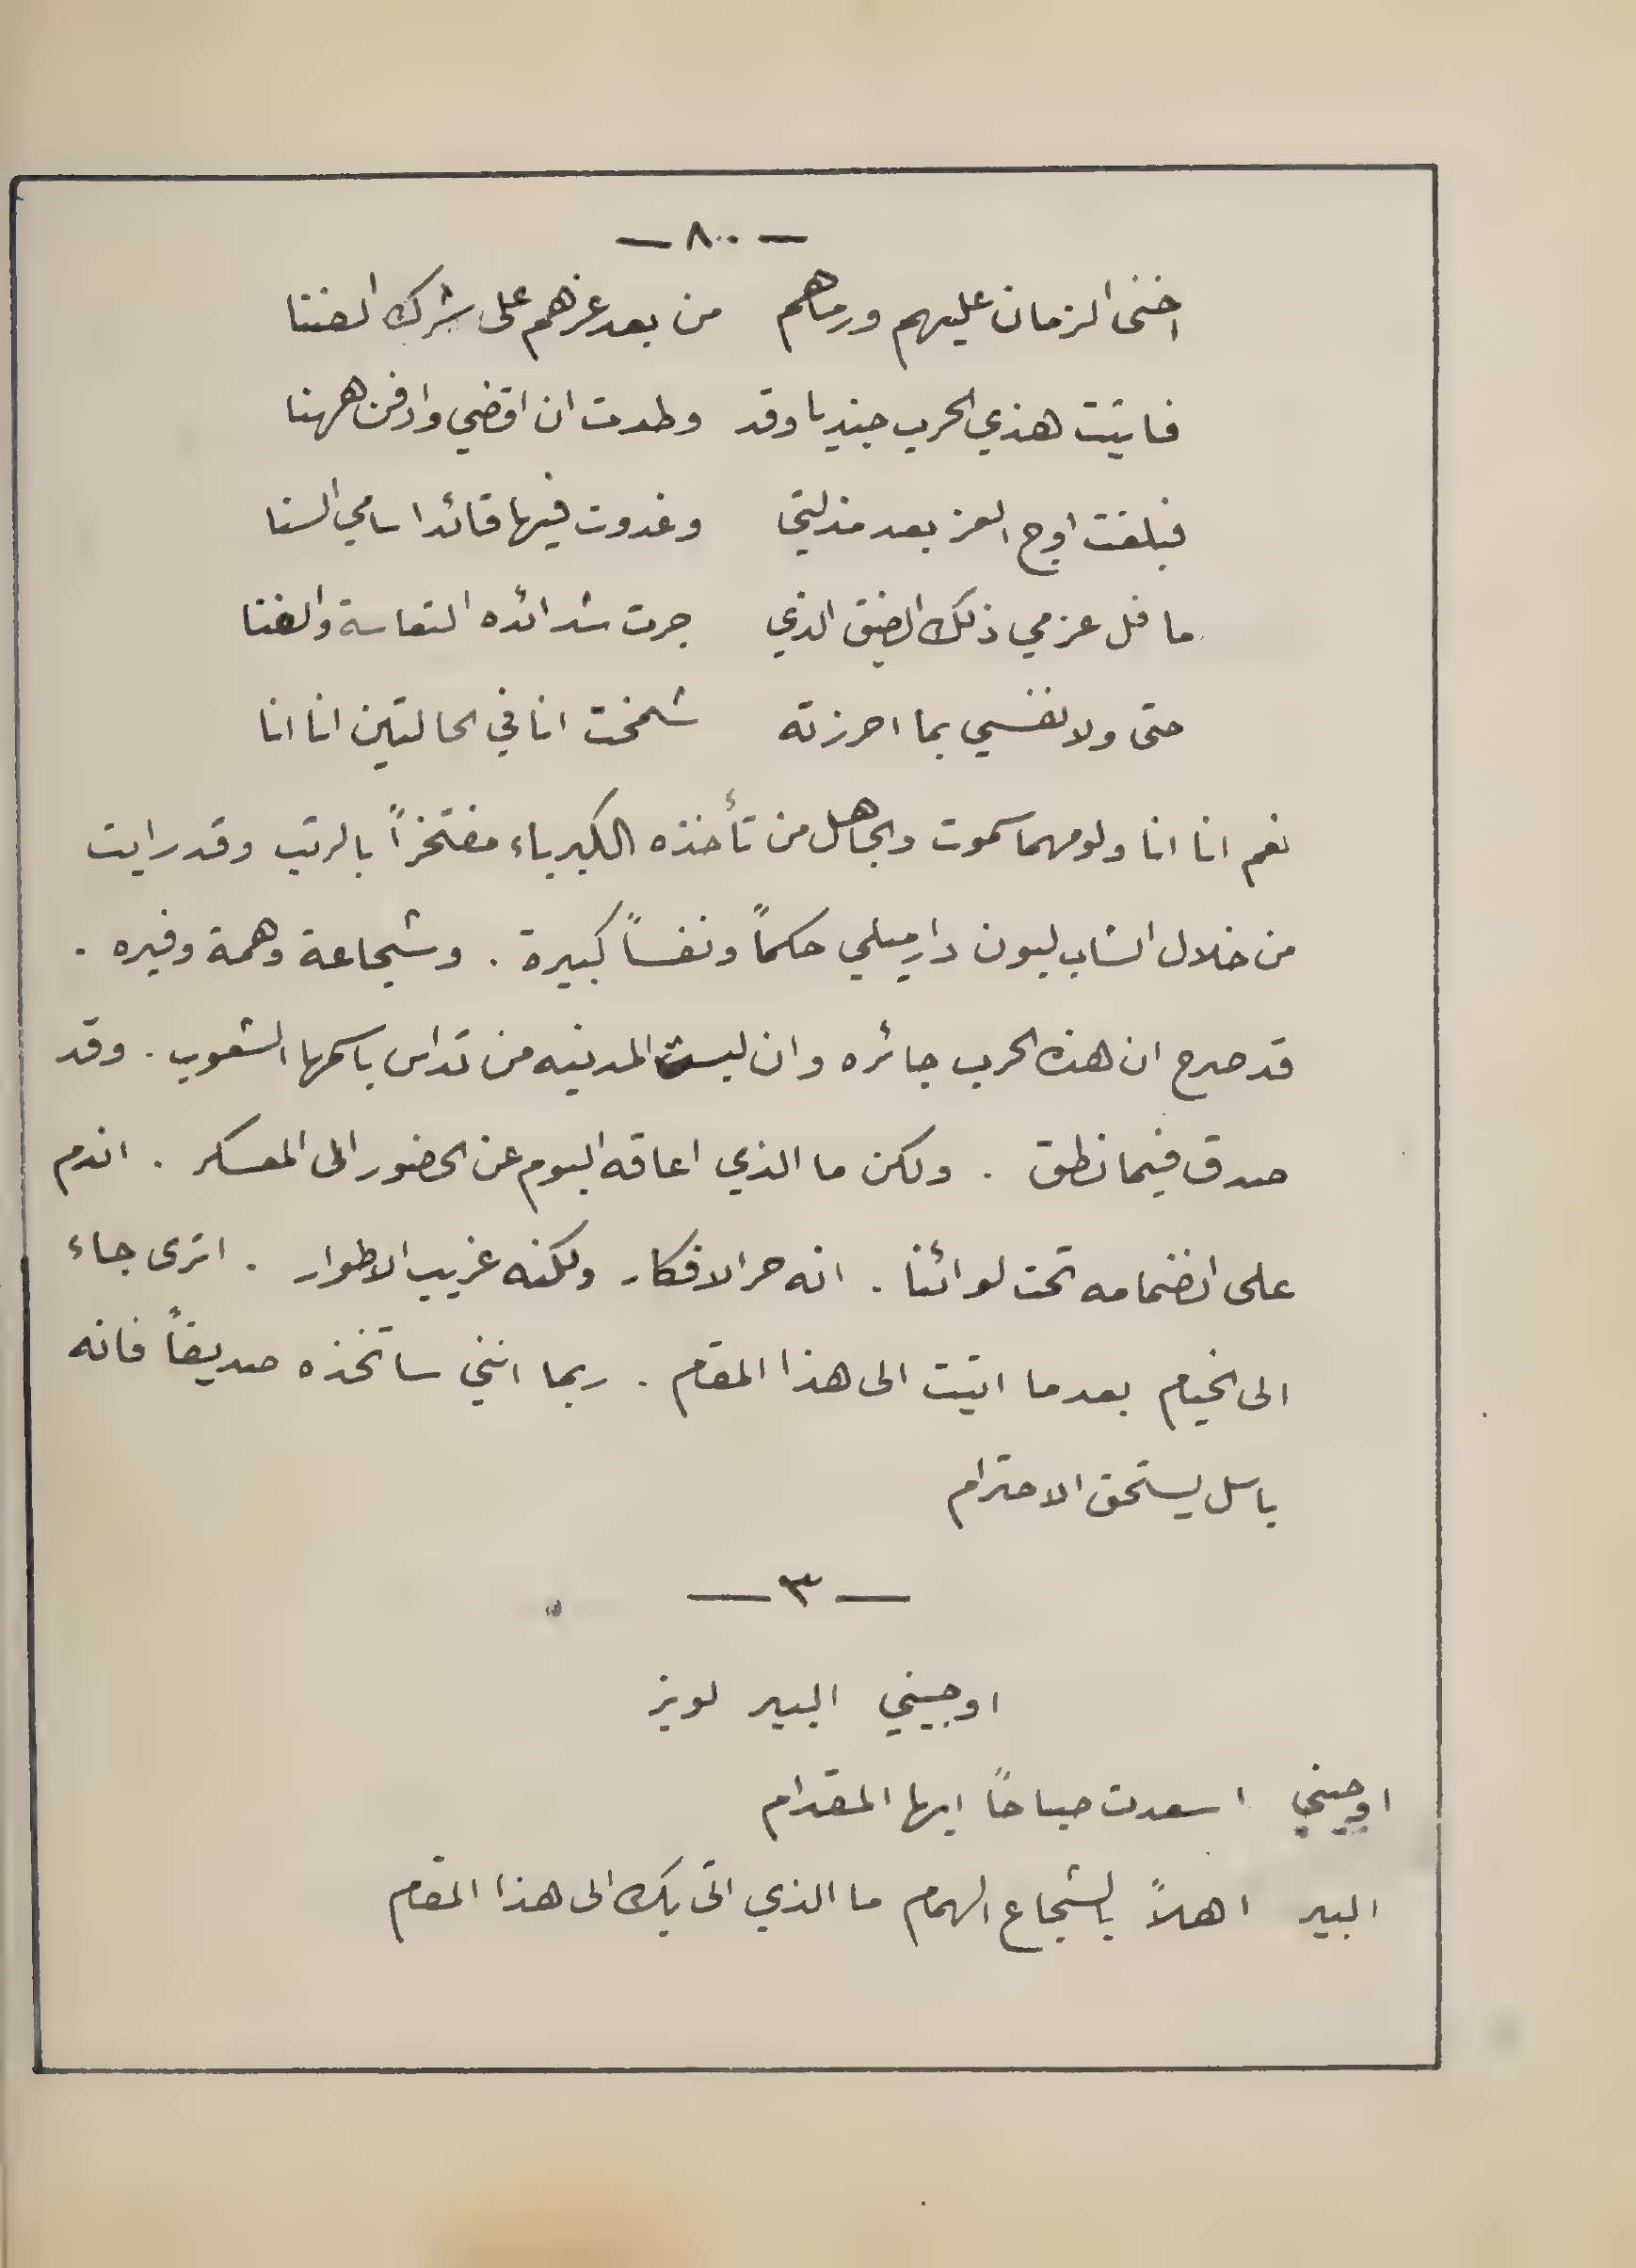 — ٨٠٠ —
اخنى الزمان عليهم ورماهم من بعد عزهم على شرك الضنا
فاتيت هذي الحرب جنديا وقد وطدت ان اقضي وادفن ههنا
فبلغت اوج العز بعد مذلتي وغدوت فيها قائدا سامي السنا
ما فل عزمي ذلك الضيق الذي جرت شدائده التعاسة والضنا
حتى ولا نفسي بما احرزته شمخت انا في الحالتين انا انا
نعم انا انا ولو مهما سموت والجاهل من تأخذه الكبرياء مفتخراً بالرتب وقد رايت
من خلال الشاب ليون دارميلي حكماً ونفساً كبيرة . وشجاعة وهمة وفيره .
قد صرح ان هذه الحرب جائره وان ليست المدنيه من تداس باسمها الشعوب . وقد
صدق فيما نطق . ولكن ما الذي اعاقه اليوم عن الحضور الى المعسكر . اندم
على انضمامه تحت لوائنا . انه حر الافكار ولكنه غريب الاطوار . اترى جاء
الى الخيام بعدما اتيت الى هذا المقام . ربما انني ساتخذه صديقاً فانه
باسل يستحق الاحترام
— ٣ —
اوجيني البير لويز
اوجيني اسعدت صباحاً ايها المقدام
البير اهلاً بالشجاع الهمام ما الذي اتى بك الى هذا المقام